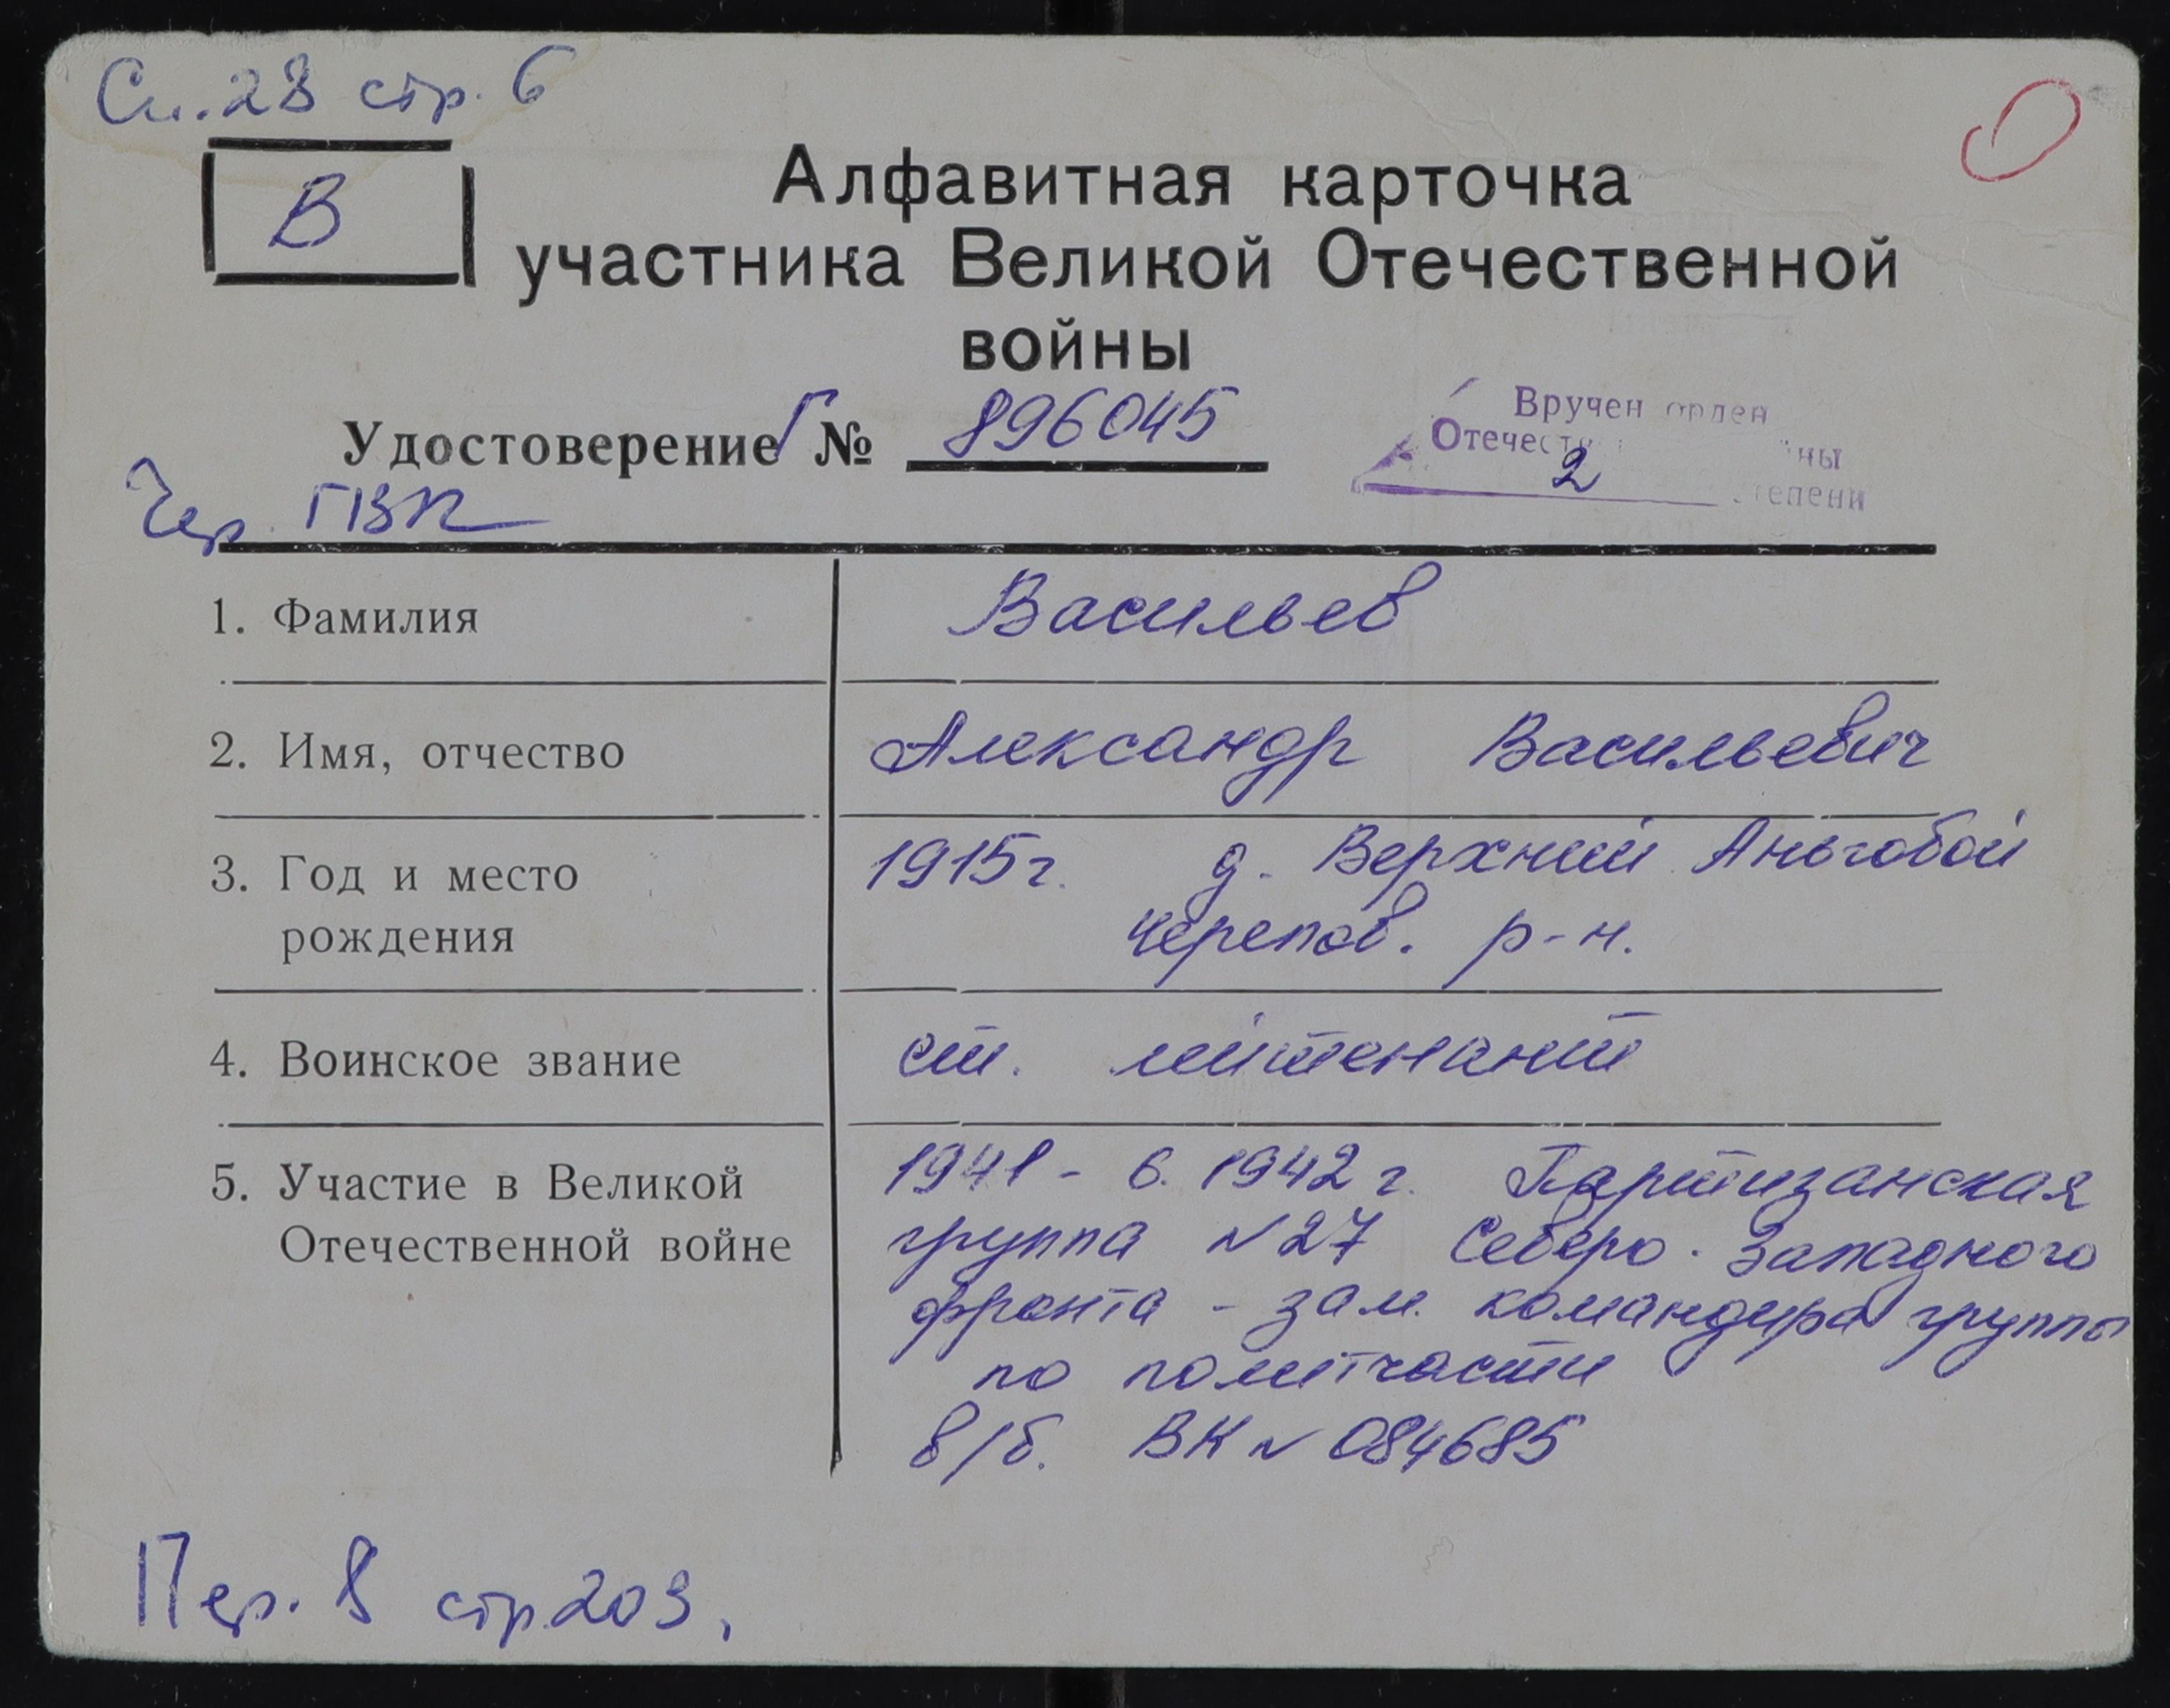 Сп. 28 стр. 6
В
Алфавитная карточка
участника Великой Отечественной
войны
Удостоверение Г № 896045
Вручен орден
Отечеств ны
2 степени
Чер. ГВК
1. Фамилия Васильев
2. Имя, отчество Александр Васильевич
3. Год и место 1915г. д. Верхний Аньгобой
рождения черепов. р-н.
4. Воинское звание ст. лейтенант
5. Участие в Великой 1941 - 6. 1942 г. Партизанская
Отечественной войне группа № 27 Северо-Западного
фронта - зам. командира группы
по политчасти
в/б. ВК № 084685
Пер. 8 стр. 203.